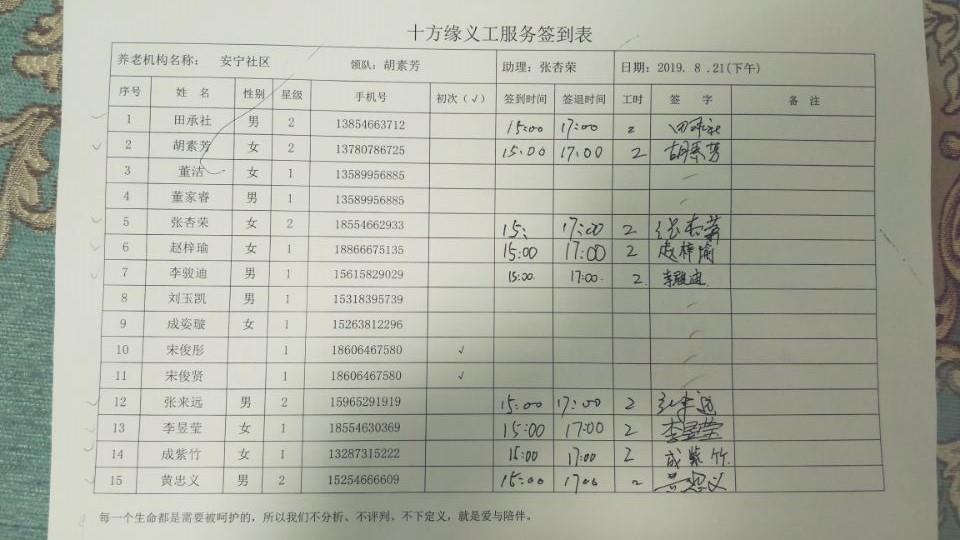 十方缘义工服务签到表
养老机构名称： 安宁社区 领队：胡素芳 助理：张杏荣 日期：2019. 8 .21(下午)
序号 姓 名 性别 星级 手机号 初次（√） 签到时间 签退时间 工时 签 字 备 注
1 田承社 男 2 13854663712 15:00 17:00 2 田承社
2 胡素芳 女 2 13780786725 15:00 17:00 2 胡素芳
3 董洁 女 1 13589956885
4 董家睿 男 1 13589956885
5 张杏荣 女 2 18554662933 15: 17:00 2 张杏荣
6 赵梓瑜 女 1 18866675135 15:00 17:00 2 赵梓瑜
7 李骏迪 男 1 15615829029 15:00 17:00 2 李骏迪
8 刘玉凯 男 1 15318395739
9 成姿璇 女 1 15263812296
10 宋俊彤 1 18606467580 √
11 宋俊贤 1 18606467580 √
12 张来远 男 2 15965291919 15:00 17:00 2 张来远
13 李昱莹 女 1 18554630369 15:00 17:00 2 李昱莹
14 成紫竹 女 1 13287315222 15:00 17:00 2 成紫竹
15 黄忠义 男 2 15254666609 15:00 17:00 2 黄忠义
每一个生命都是需要被呵护的，所以我们不分析、不评判、不下定义，就是爱与陪伴。